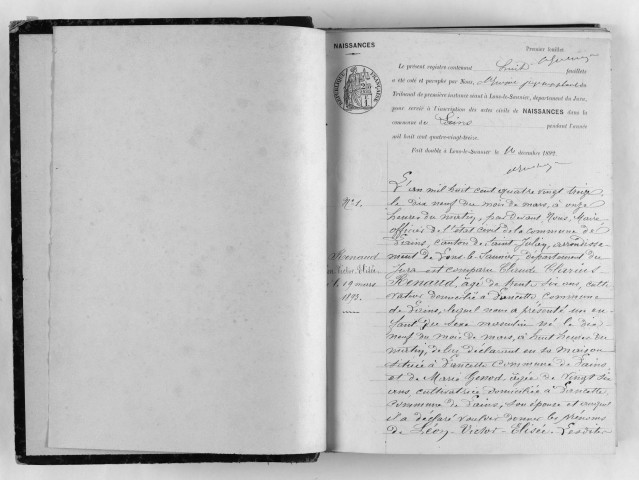 NAISSANCES
Premier feuillet
Le présent registre contenant huit feuillets
a été coté et paraphé par Nous,
Tribunal de première instance séant à Lons-le-Saunier, département du Jura,
pour servir à l'inscription des actes civils de NAISSANCES dans la
commune de Lains pendant l'année
mil huit cent quatre-vingt-treize.
Fait double à Lons-le-Saunier le décembre 1892.
RÉPUBLIQUE FRANÇAISE
N° 1.
Renaud
Léon Victor Elisée
19 mars
1893.
L'an mil huit cent quatre vingt treize
le dix neuf du mois de mars, à onze
heures du matin, par devant Nous, Maire
officier de l'état civil de la commune de
Lains, canton de Saint Julien, arrondisse-
ment de Lons-le-Saunier, département du
Jura est comparu Claude
Renaud, âgé de trente six ans, culti-
vateur domicilié à Dancette, commune
de Lains, lequel nous a présenté un en-
fant du sexe masculin né le dix
neuf du mois de mars, à huit heures du
matin, de lui déclarant en sa maison
située à Dancette commune de Lains
et de Marie âgée de vingt six
ans, cultivatrice domiciliée à Dancette,
commune de Lains, son épouse et auquel
il a déclaré vouloir donner les prénoms
de Léon-Victor-Elisée. Lesdites